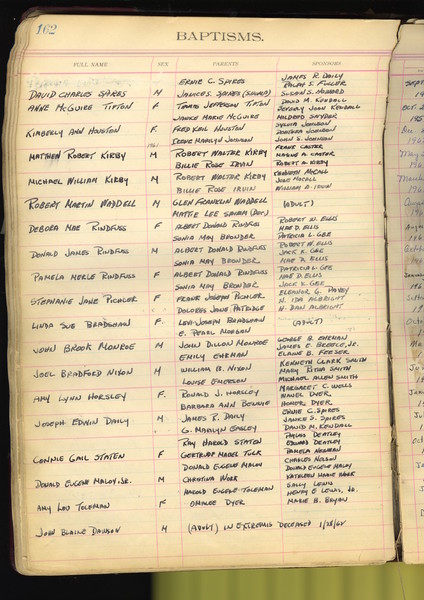 162
BAPTISMS.
FULL NAME SEX PARENTS SPONSORS
ERNIE C. SPIRES JAMES R. DAILY
RALPH S. FULLER
DAVID CHARLES SPIRES M JANICE S. SPIRES SUSAN S. HUBBARD
DAVID M. KENDALL
ANNE MCGUIRE TIPTON F. TRAVIS JEFFERSON TIPTON BEVERLY JOAN KENDALL
JANICE MARIE MCGUIRE MILDRED SNYDER
FRED KEIL HOUSTON SYLVIA JOHNSON
KIMBERLY ANN HOUSTON F. DEBORAH JOHNSON
IRENE MARILYN JOHNSON JOHN S. JOHNSON
1961 FRANK CASTER
MATHEW ROBERT KIRBY M ROBERT WALTER KIRBY MAXINE A. CASTER
BILLIE ROSE IRVIN ROBERT A. KIRBY
MICHAEL WILLIAM KIRBY M ROBERT WALTER KIRBY KENNETH MCCALL
JUNE MCCALL
BILLIE ROSE IRVIN WILLIAM A. IRVIN
ROBERT MARTIN WADDELL M GLEN FRANKLIN WADDELL (ADULT)
MATTIE LEE SARAH
DEBORA MAE RINDFUSS F ALBERT DONALD RINDFUSS ROBERT W. ELLIS
MAE D. ELLIS
SONIA MAY BRONDER PATRICIA L. GEE
DONALD JAMES RINDFUSS M ALBERT DONALD RINDFUSS ROBERT W. ELLIS
JACK K. GEE
SONIA MAY BRONDER MAE D. ELLIS
PAMELA MERLE RINDFUSS F ALBERT DONALD RINDFUSS PATRICIA L. GEE
MAE D. ELLIS
SONIA MAY BRONDER JACK K. GEE
STEPHANIE JANE PICHLER F FRANK JOSEPH PICHLER ELEANOR G. PAVEY
N. IDA ALBRIGHT
DOLORES JANE PATRIDGE N. DAN ALBRIGHT
LINDA SUE BRADSHAW F LEVI JOSEPH BRADSHAW (ADULT)
E. PEARL MORGAN
JOHN BROOK MONROE M JOHN DILLON MONROE GEORGE B. EHRMAN
JAMES E. BREECE, JR.
EMILY EHRMAN ELAINE B. FEESER
JOEL BRADFORD NIXON M WILLIAM B. NIXON KENNETH CLARK SMITH
MARY RITNA SMITH
LOUISE EMERSON MICHAEL ALLEN SMITH
AMY LYNN HORSLEY F. RONALD J. HORSLEY MARGARET C. WELLS
HAZEL DYER
BARBARA ANN HOMER DYER
JOSEPH EDWIN DAILY M JAMES R. DAILY ERNIE C. SPIRES
JANICE S. SPIRES
G. MARILYN EASLEY DAVID M. KENDALL
RAY HAROLD STATEN PHYLIS DEATLEY
EDWARD DEATLEY
CONNIE GAIL STATEN F GERTRUDE MABEL TULK PAMELA NEWMAN
DONALD EUGENE MALOY CHARLES NELSON
DONALD EUGENE MALOY
DONALD EUGENE MALOY, JR. M CHRISTINA WORK KATHLEEN MARIE
HAROLD EUGENE TOLEMAN SALLY LEWIS
HENRY E. LEWIS, JR.
AMY LOU TOLEMAN F OMALEE DYER MARIE B. BRYAN
JOHN BLAINE DAWSON M (ADULT) IN EXTREMIS DECEASED 1/28/62